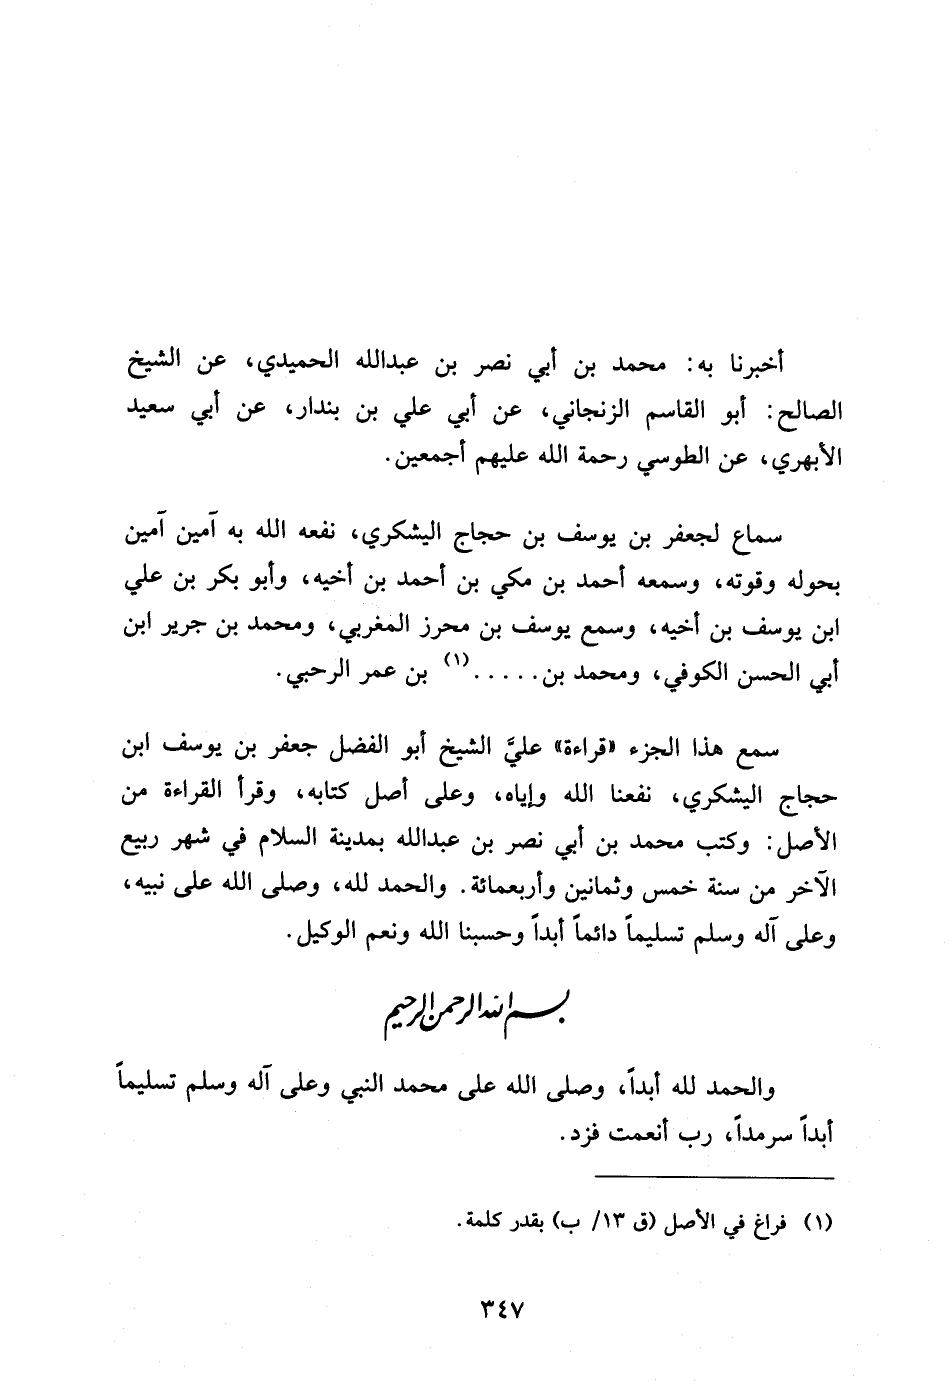 أخبرنا به: محمد بن أبي نصر بن عبدالله الحميدي، عن الشيخ
الصالح: أبو القاسم الزنجاني، عن أبي علي بن بندار، عن أبي سعيد
الأبهري، عن الطوسي رحمة الله عليهم أجمعين.
سماع لجعفر بن يوسف بن حجاج اليشكري، نفعه الله به آمين آمين
بحوله وقوته، وسمعه أحمد بن مكي بن أحمد بن أخيه، وأبو بكر بن علي
ابن يوسف بن أخيه، وسمع يوسف بن محرز المغربي، ومحمد بن جرير ابن
أبي الحسن الكوفي، ومحمد بن.....(١) بن عمر الرحبي.
سمع هذا الجزء «قراءة» عليَّ الشيخ أبو الفضل جعفر بن يوسف ابن
حجاج اليشكري، نفعنا الله وإياه، وعلى أصل كتابه، وقرأ القراءة من
الأصل: وكتب محمد بن أبي نصر بن عبدالله بمدينة السلام في شهر ربيع
الآخر من سنة خمس وثمانين وأربعمائة. والحمد لله، وصلى الله على نبيه،
وعلى آله وسلم تسليماً دائماً أبداً وحسبنا الله ونعم الوكيل.
بسم الله الرحمن الرحيم
والحمد لله أبداً، وصلى الله على محمد النبي وعلى آله وسلم تسليماً
أبداً سرمداً، رب أنعمت فزد.
(١) فراغ في الأصل (ق ١٣/ ب) بقدر كلمة.
٣٤٧